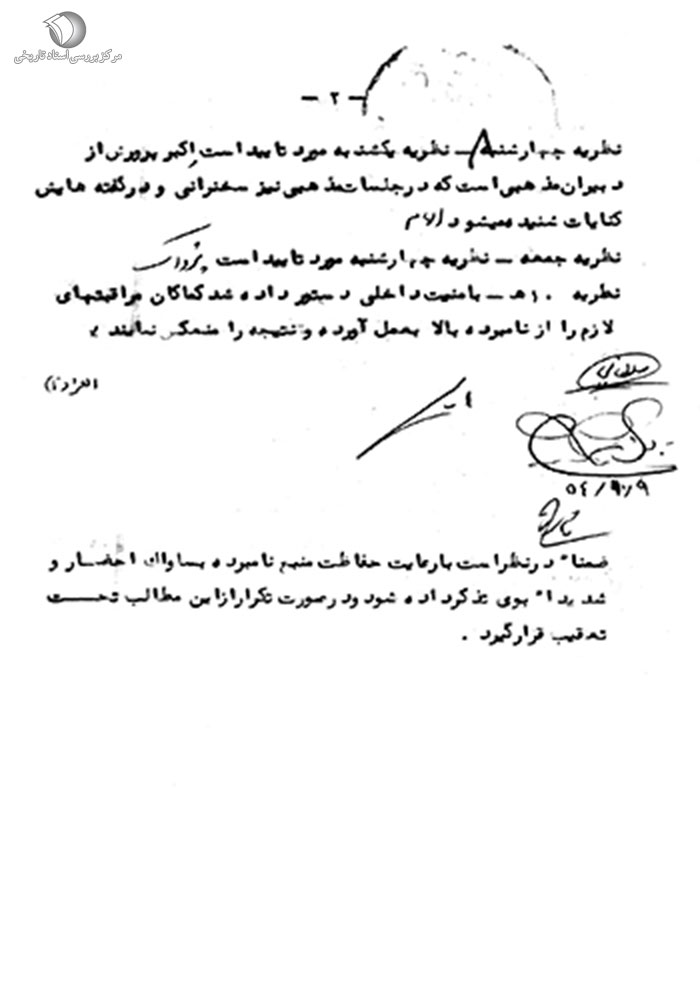 مرکز بررسی اسناد تاریخی
— ۲ —
نظریه چهارشنبه — نظریه یکشنبه مورد تایید است اکبر پرورش از
دبیران مذهبی است که در جلسات مذهبی نیز سخنرانی و در گفته هایش
کنایات شنیده میشود
نظریه جمعه — نظریه چهارشنبه مورد تایید است
نظریه ۱۰ ه — بامنیت داخلی دستور داده شد کماکان مراقبتهای
لازم را از نامبرده بالا بعمل آورده و نتیجه را منعکس نمایند
۵۴/۹/۹
ضمنا" در نظر است با رعایت حفاظت منبع نامبرده بساواک احضار و
شدیدا" بوی تذکر داده شود و در صورت تکرار از این مطالب تحت
تعقیب قرار گیرد .